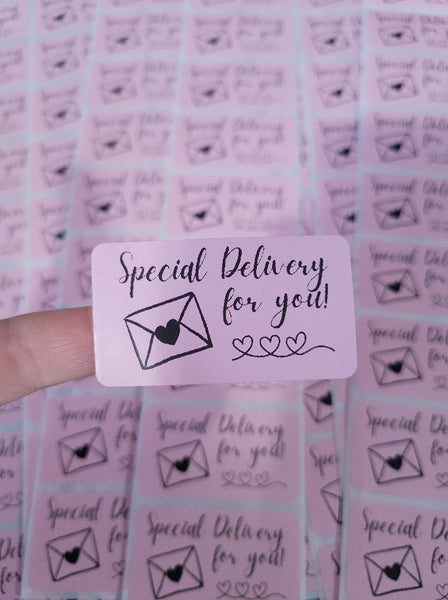 Special Delivery
for you!